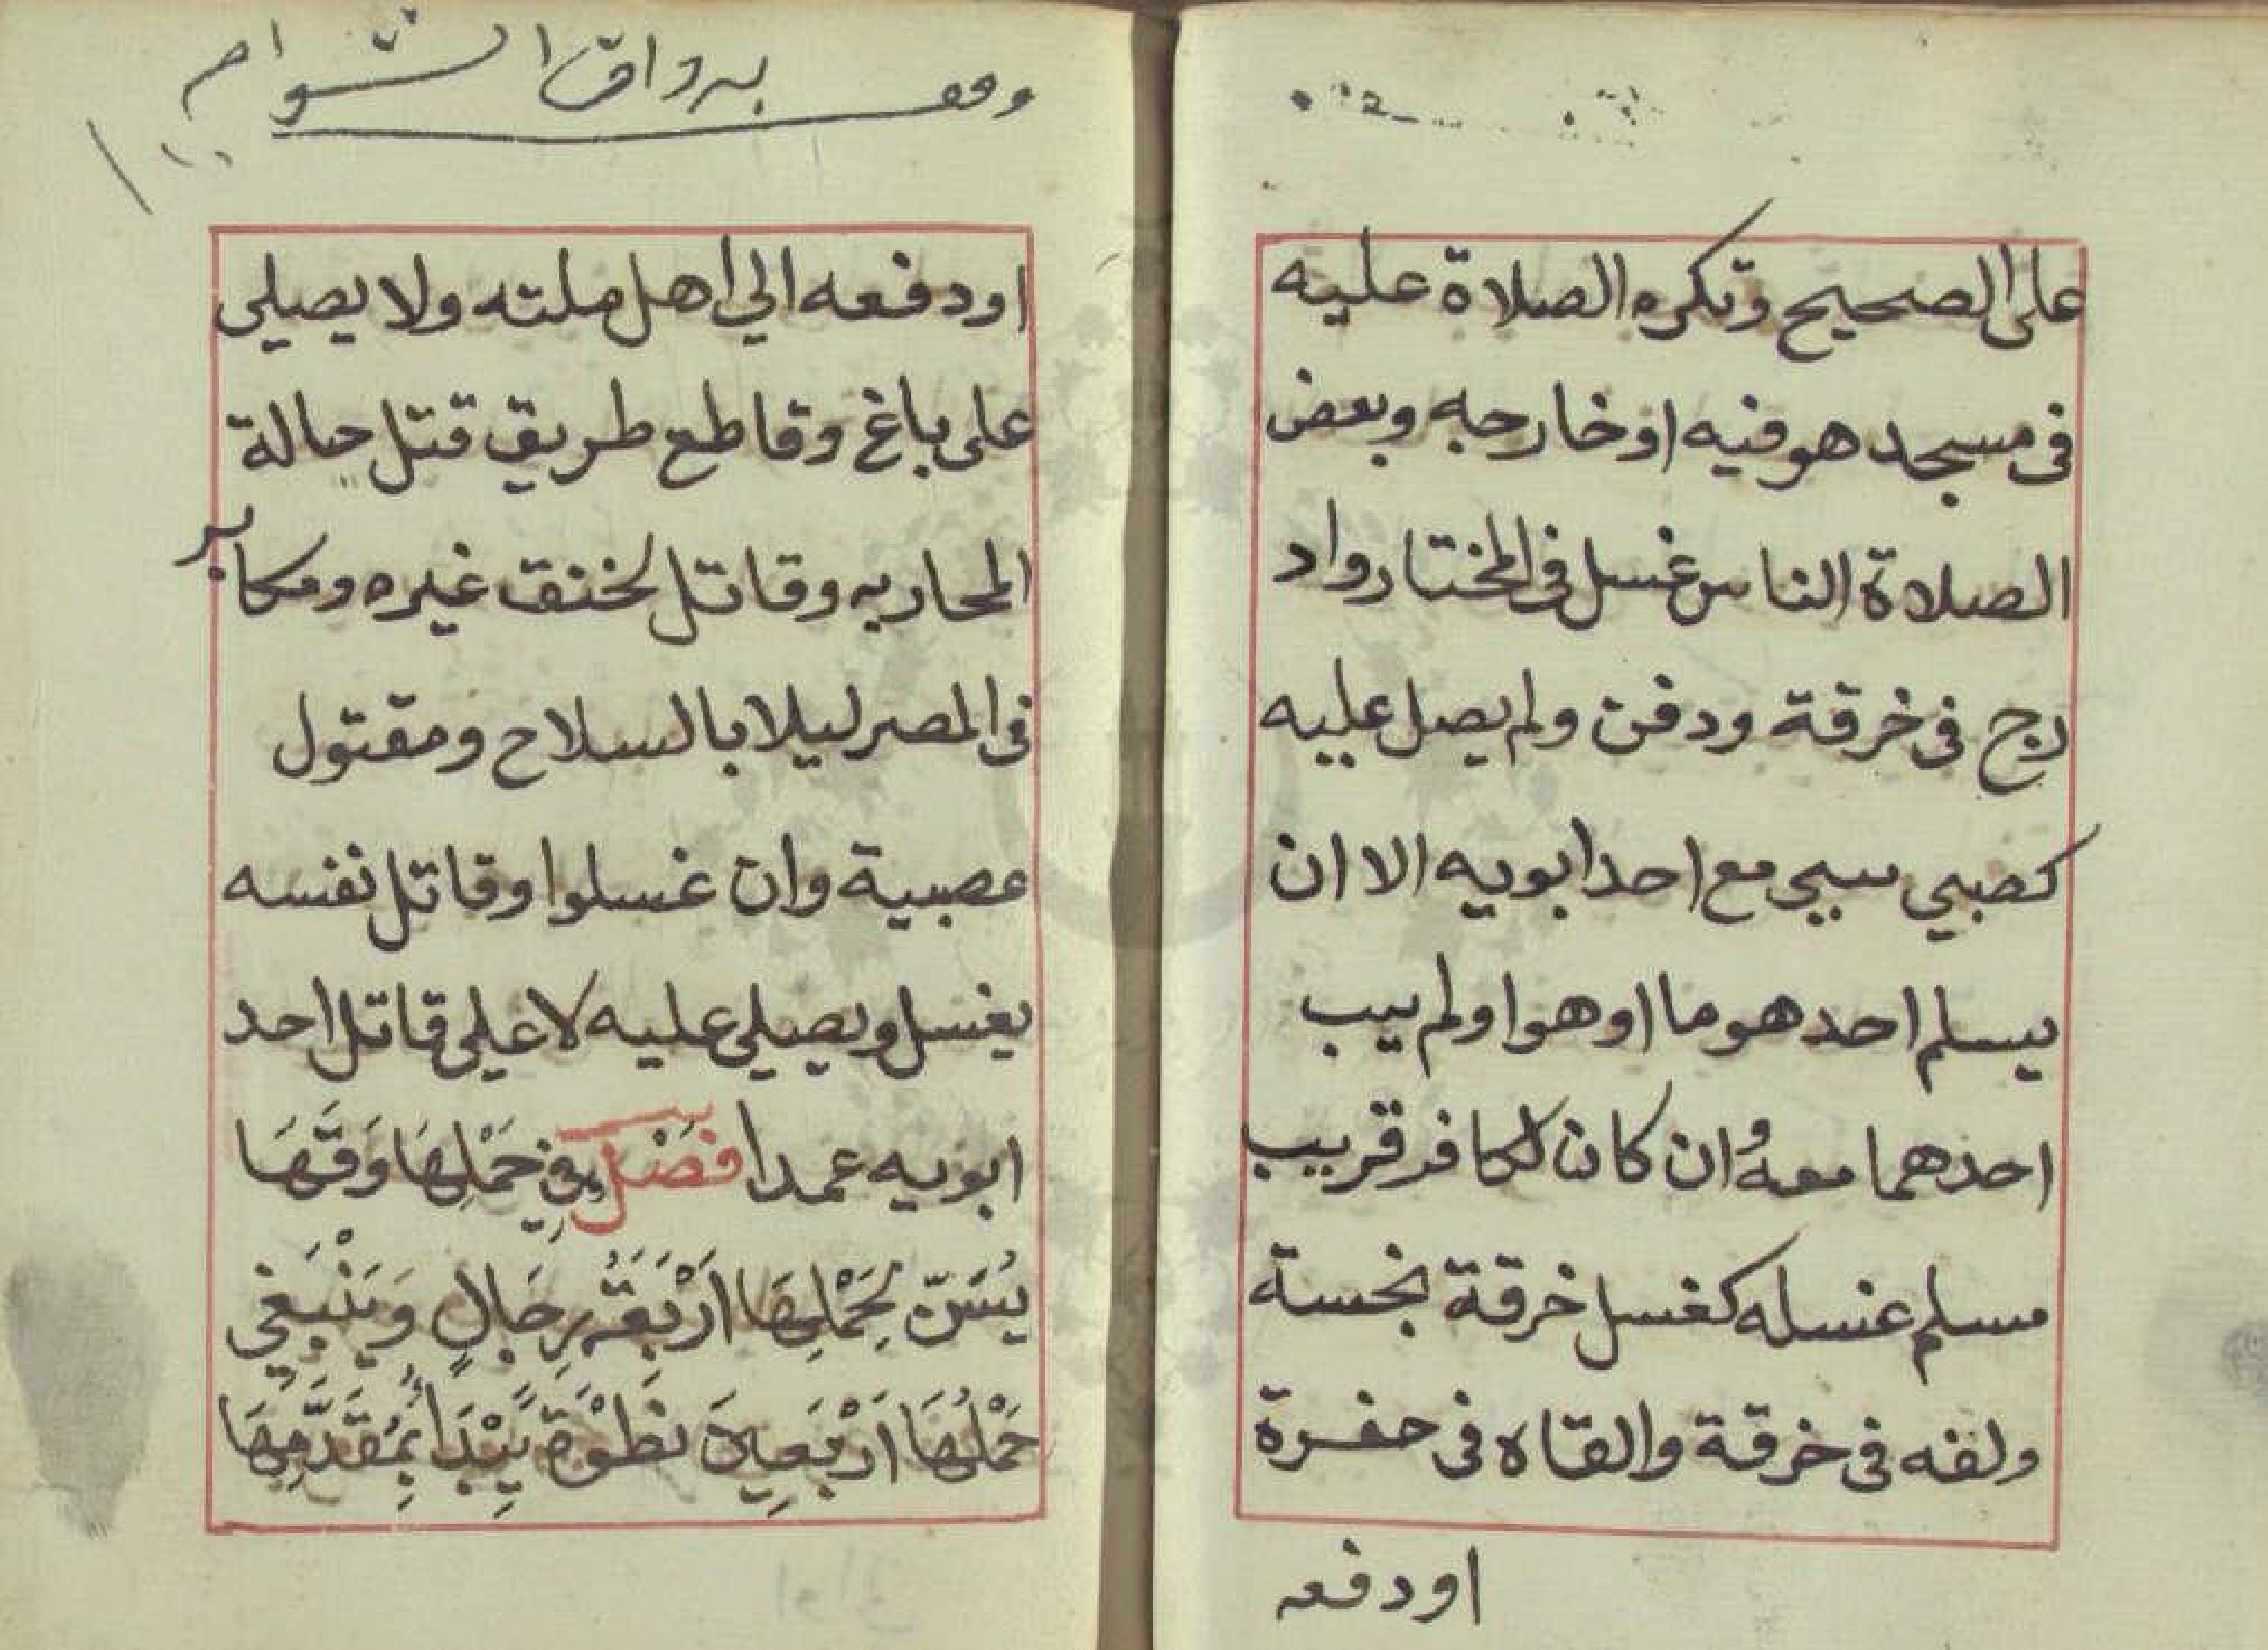 على الصحيح وتكره الصلاة عليه
فى مسجد هو فيه او خارجه وبعض
الصلاة الناس غسل فى المختار واد
رج فى خرقة ودفن ولم يصل عليه
كصبي سبي مع احد ابويه الا ان
يسلم احد هوما او هوا ولم يسب
احدهما معه وان كان لكافر قريب
مسلم غسله كغسل خرقة نجسة
ولفه فى خرقة والقاه فى حفرة
او دفعه
وقف برواق الشوام
او دفعه الي اهل ملته ولا يصلى
على باغ وقاطع طريق قتل حالة
المحاربه وقاتل لخنق غيره ومكابر
فى المصر ليلا بالسلاح ومقتول
عصبية وان غسلوا وقاتل نفسه
يغسل ويصلي عليه لا على قاتل احد
ابويه عمدا فَصْل فِي حَمْلِهَا وَ
يُسَنّ لِحَمْلِهَا اَرْبَعَةُ رِجَالٍ وَيَنْبَغِي
حَمْلُهَا اَرْبَعِينَ خطْوَةً يَبْدَأُ بِمُقَدَّمِهَا